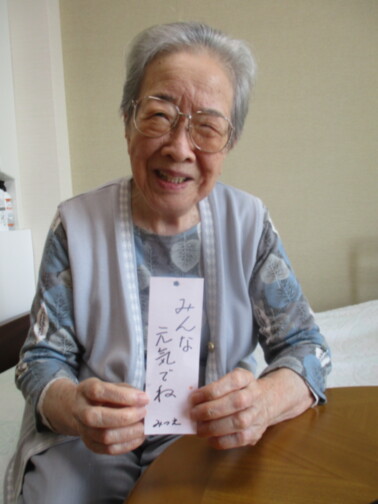 みんな
元気でね
みつえ